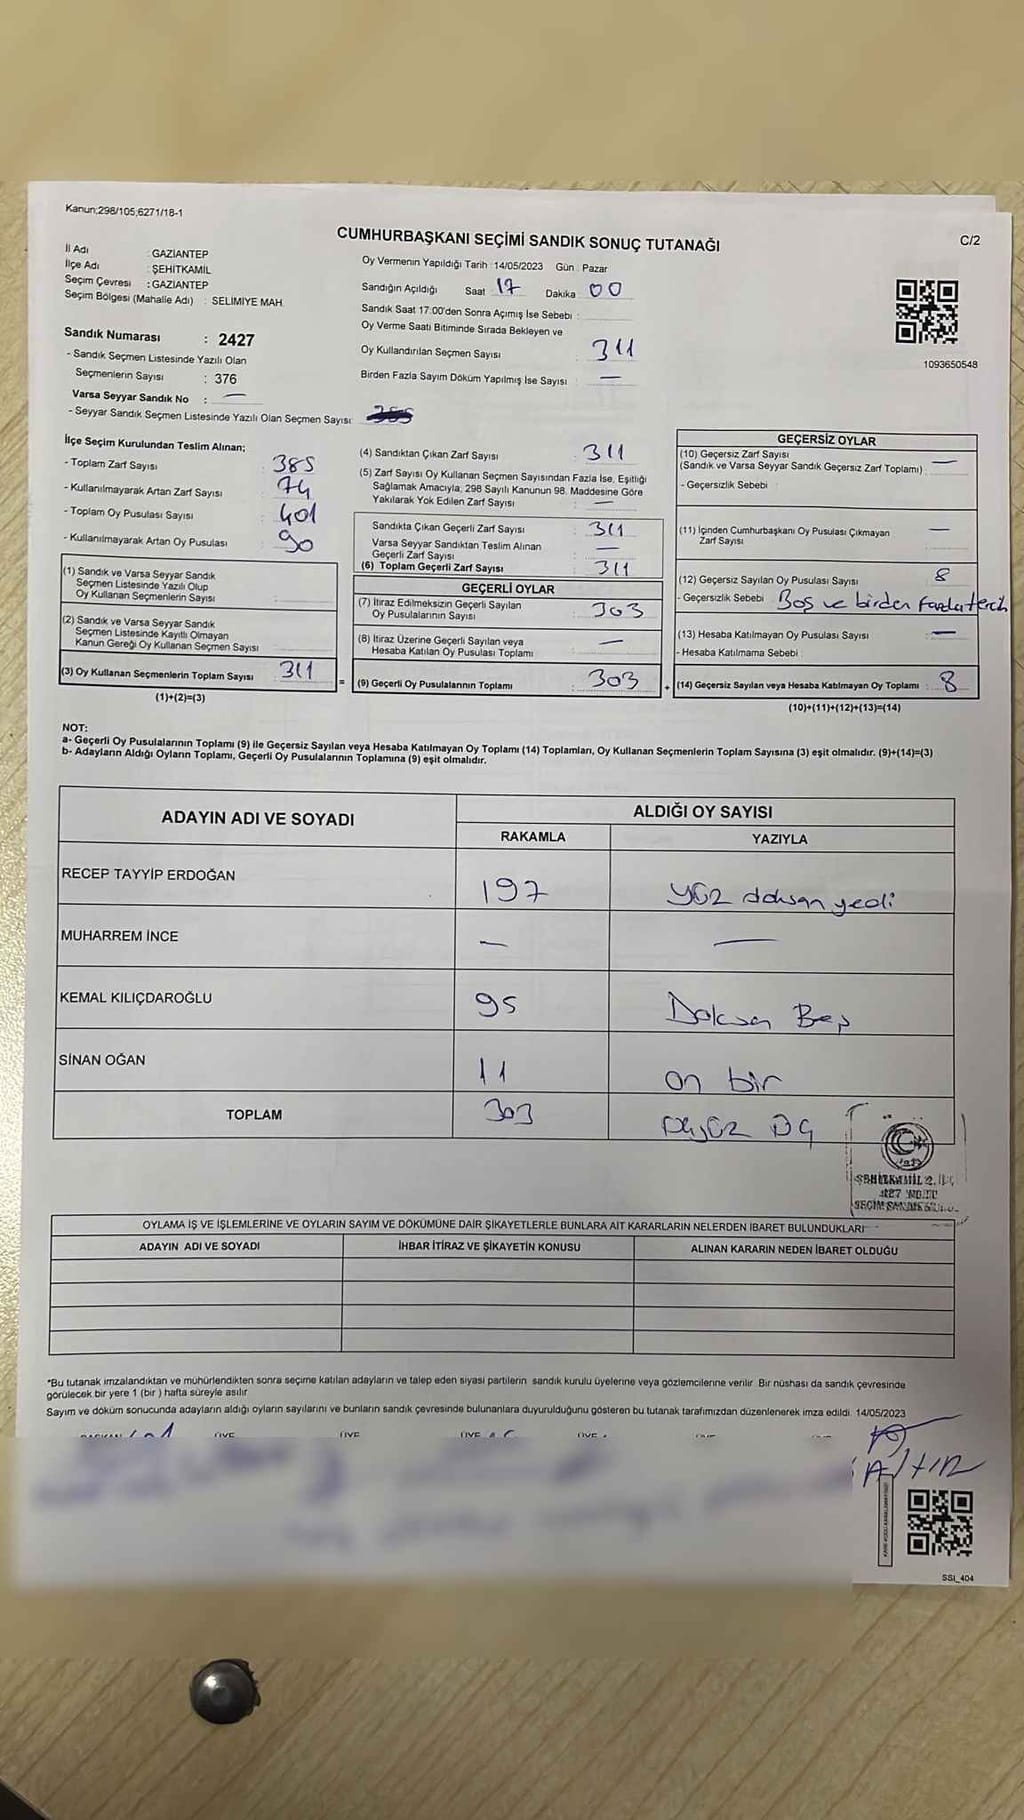 Kanun;298/105;6271/18-1
CUMHURBAŞKANI SEÇİMİ SANDIK SONUÇ TUTANAĞI
C/2
İl Adı : GAZİANTEP
İlçe Adı : ŞEHİTKAMİL
Seçim Çevresi : GAZİANTEP
Seçim Bölgesi (Mahalle Adı) : SELİMİYE MAH.
Sandık Numarası : 2427
- Sandık Seçmen Listesinde Yazılı Olan
Seçmenlerin Sayısı : 376
Varsa Seyyar Sandık No : —
- Seyyar Sandık Seçmen Listesinde Yazılı Olan Seçmen Sayısı:
Oy Vermenin Yapıldığı Tarih :14/05/2023 Gün : Pazar
Sandığın Açıldığı Saat 17 Dakika 00
Sandık Saat 17:00'den Sonra Açımış İse Sebebi :
Oy Verme Saati Bitiminde Sırada Bekleyen ve
Oy Kullandırılan Seçmen Sayısı : 311
Birden Fazla Sayım Döküm Yapılmış İse Sayısı : —
1093650548
İlçe Seçim Kurulundan Teslim Alınan;
- Toplam Zarf Sayısı : 385
- Kullanılmayarak Artan Zarf Sayısı : 74
- Toplam Oy Pusulası Sayısı : 401
- Kullanılmayarak Artan Oy Pusulası : 90
(1) Sandık ve Varsa Seyyar Sandık
Seçmen Listesinde Yazılı Olup
Oy Kullanan Seçmenlerin Sayısı :
(2) Sandık ve Varsa Seyyar Sandık
Seçmen Listesinde Kayıtlı Olmayan
Kanun Gereği Oy Kullanan Seçmen Sayısı :
(3) Oy Kullanan Seçmenlerin Toplam Sayısı : 311
(1)+(2)=(3)
(4) Sandıktan Çıkan Zarf Sayısı : 311
(5) Zarf Sayısı Oy Kullanan Seçmen Sayısından Fazla İse, Eşitliği
Sağlamak Amacıyla; 298 Sayılı Kanunun 98. Maddesine Göre
Yakılarak Yok Edilen Zarf Sayısı : —
Sandıkta Çıkan Geçerli Zarf Sayısı : 311
Varsa Seyyar Sandıktan Teslim Alınan
Geçerli Zarf Sayısı : —
(6) Toplam Geçerli Zarf Sayısı : 311
GEÇERLİ OYLAR
(7) İtiraz Edilmeksizin Geçerli Sayılan
Oy Pusulalarının Sayısı : 303
(8) İtiraz Üzerine Geçerli Sayılan veya
Hesaba Katılan Oy Pusulası Toplamı : —
= (9) Geçerli Oy Pusulalarının Toplamı : 303
GEÇERSİZ OYLAR
(10) Geçersiz Zarf Sayısı
(Sandık ve Varsa Seyyar Sandık Geçersiz Zarf Toplamı) : —
- Geçersizlik Sebebi :
(11) İçinden Cumhurbaşkanı Oy Pusulası Çıkmayan
Zarf Sayısı : —
(12) Geçersiz Sayılan Oy Pusulası Sayısı : 8
- Geçersizlik Sebebi : Boş ve birden fazla tercih
(13) Hesaba Katılmayan Oy Pusulası Sayısı : —
- Hesaba Katılmama Sebebi :
+ (14) Geçersiz Sayılan veya Hesaba Katılmayan Oy Toplamı : 8
(10)+(11)+(12)+(13)=(14)
NOT:
a- Geçerli Oy Pusulalarının Toplamı (9) ile Geçersiz Sayılan veya Hesaba Katılmayan Oy Toplamı (14) Toplamları, Oy Kullanan Seçmenlerin Toplam Sayısına (3) eşit olmalıdır. (9)+(14)=(3)
b- Adayların Aldığı Oyların Toplamı, Geçerli Oy Pusulalarının Toplamına (9) eşit olmalıdır.
ADAYIN ADI VE SOYADI
ALDIĞI OY SAYISI
RAKAMLA YAZIYLA
RECEP TAYYİP ERDOĞAN 197 yüz doksan yedi
MUHARREM İNCE — —
KEMAL KILIÇDAROĞLU 95 Doksan Beş
SİNAN OĞAN 11 on bir
TOPLAM 303 üçyüz üç
ŞEHİTKAMİL 2. İLÇ
OYLAMA İŞ VE İŞLEMLERİNE VE OYLARIN SAYIM VE DÖKÜMÜNE DAİR ŞİKAYETLERLE BUNLARA AİT KARARLARIN NELERDEN İBARET BULUNDUKLARI
ADAYIN ADI VE SOYADI İHBAR İTİRAZ VE ŞİKAYETİN KONUSU ALINAN KARARIN NEDEN İBARET OLDUĞU
*Bu tutanak imzalandıktan ve mühürlendikten sonra seçime katılan adayların ve talep eden siyasi partilerin sandık kurulu üyelerine veya gözlemcilerine verilir. Bir nüshası da sandık çevresinde
görülecek bir yere 1 (bir ) hafta süreyle asılır.
Sayım ve döküm sonucunda adayların aldığı oyların sayılarını ve bunların sandık çevresinde bulunanlara duyurulduğunu gösteren bu tutanak tarafımızdan düzenlenerek imza edildi. 14/05/2023
SSI_404